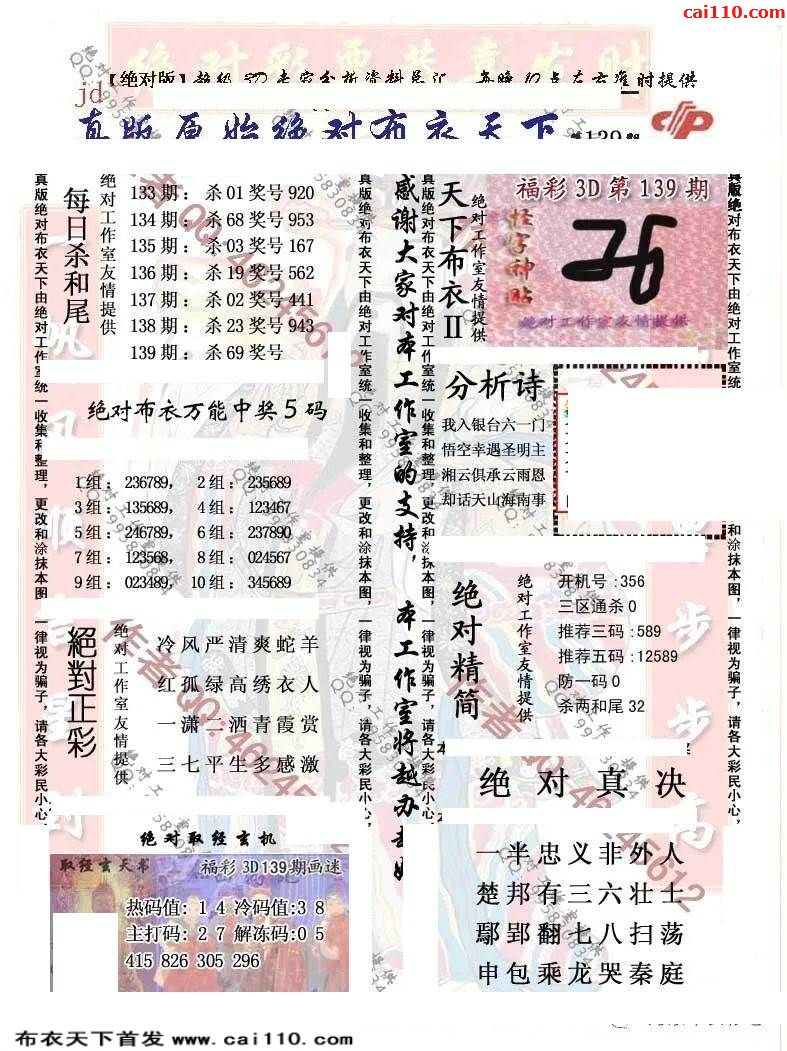 cai110.com
jd
真版原始绝对布衣天下
每日杀和尾
绝对工作室友情提供
133期：杀01奖号920
134期：杀68奖号953
135期：杀03奖号167
136期：杀19奖号562
137期：杀02奖号441
138期：杀23奖号943
139期：杀69奖号
绝对布衣万能中奖5码
1组：236789， 2组：235689
3组：135689， 4组：123467
5组：246789， 6组：237890
7组：123568， 8组：024567
9组：023489， 10组：345689
絕對正彩
绝对工作室友情提供
冷风严清爽蛇羊
红孤绿高绣衣人
一潇二洒青霞赏
三七平生多感激
绝对取经玄机
取经玄天书
福彩3D139期画迷
热码值：1 4冷码值：3 8
主打码：2 7解冻码：0 5
415 826 305 296
真版绝对布衣天下由绝对工作室统一收集和整理，更改和涂抹本图，一律视为骗子，请各大彩民小心，
真版绝对布衣天下由绝对工作室统一收集和整理，更改和涂抹本图，一律视为骗子，请各大彩民小心，
感谢大家对本工作室的支持，本工作室将越办
真版绝对布衣天下由绝对工作室统一收集和整理，更改和涂抹本图，一律视为骗子，请各大彩民小心，
天下布衣II
绝对工作室友情提供
福彩3D第139期
怪字神贴
绝对工作室友情提供
分析诗
我入银台六一门
悟空幸遇圣明主
湘云俱承云雨恩
却话天山海南事
绝对精简
绝对工作室友情提供
开机号：356
三区通杀0
推荐三码：589
推荐五码：12589
防一码0
杀两和尾32
绝对真决
一半忠义非外人
楚邦有三六壮士
鄢郢翻七八扫荡
申包乘龙哭秦庭
真版绝对布衣天下由绝对工作室统一
和涂抹本图，一律视为骗子，请各大彩民小心，
布衣天下首发 www.cai110.com